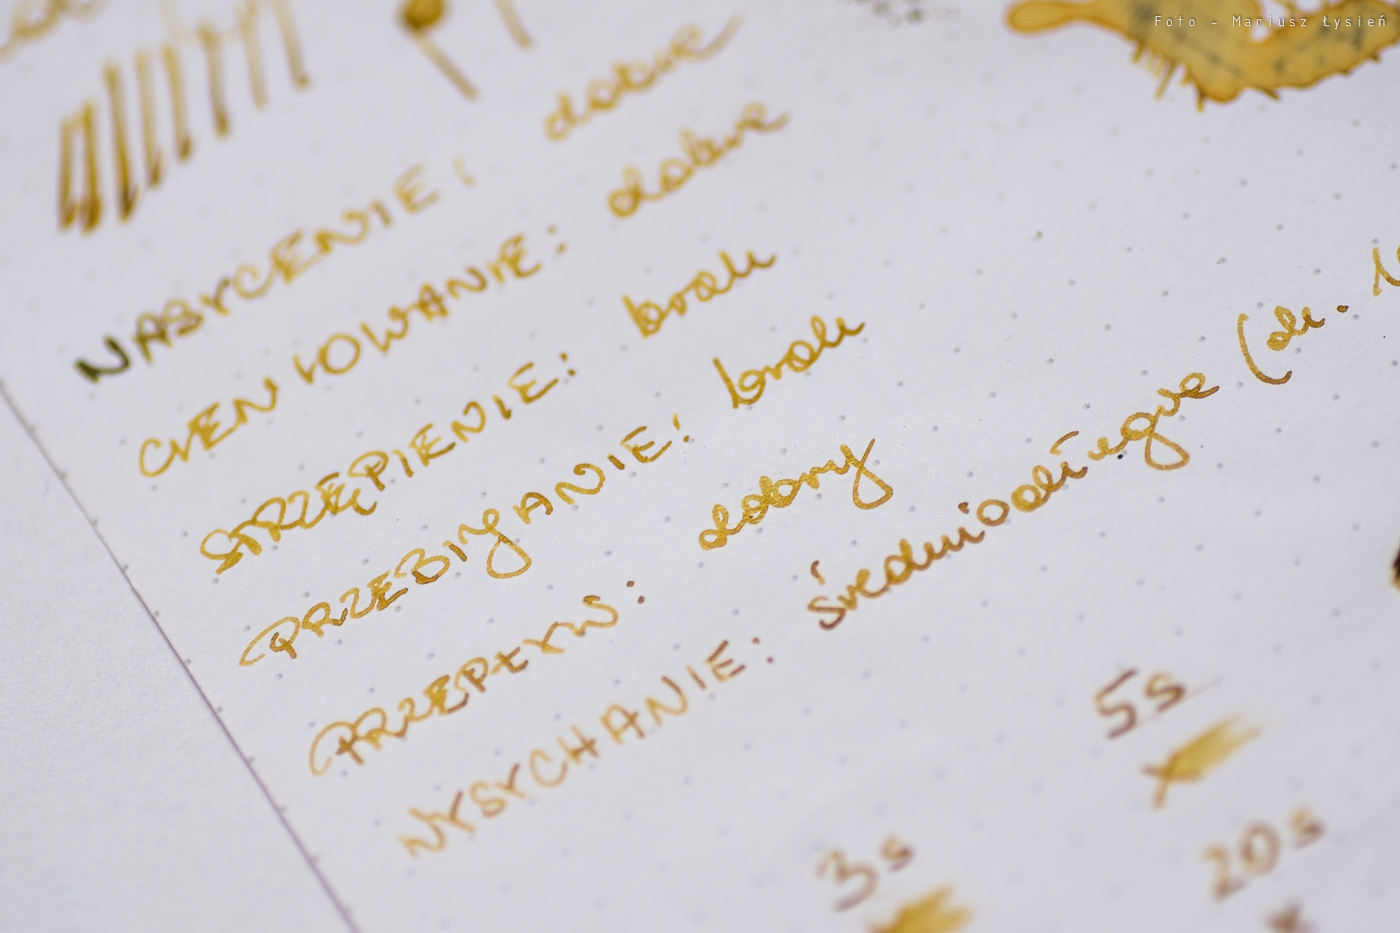 Foto - Mariusz Łysień
NASYCENIE: dobre
CIENIOWANIE: dobre
STRZĘPIENIE: brak
PRZEBIJANIE: brak
PRZEPŁYW: dobry
WYSYCHANIE: średniodługie (ok. 1
5s
3s
20s